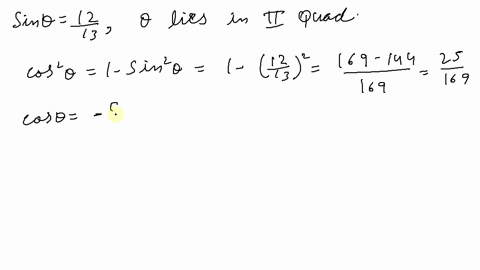 Sinθ = 12/13, θ lies in II Quad.
cos²θ = 1 - Sin²θ = 1 - (12/13)² = 169 - 144/169 = 25/169
cosθ = -